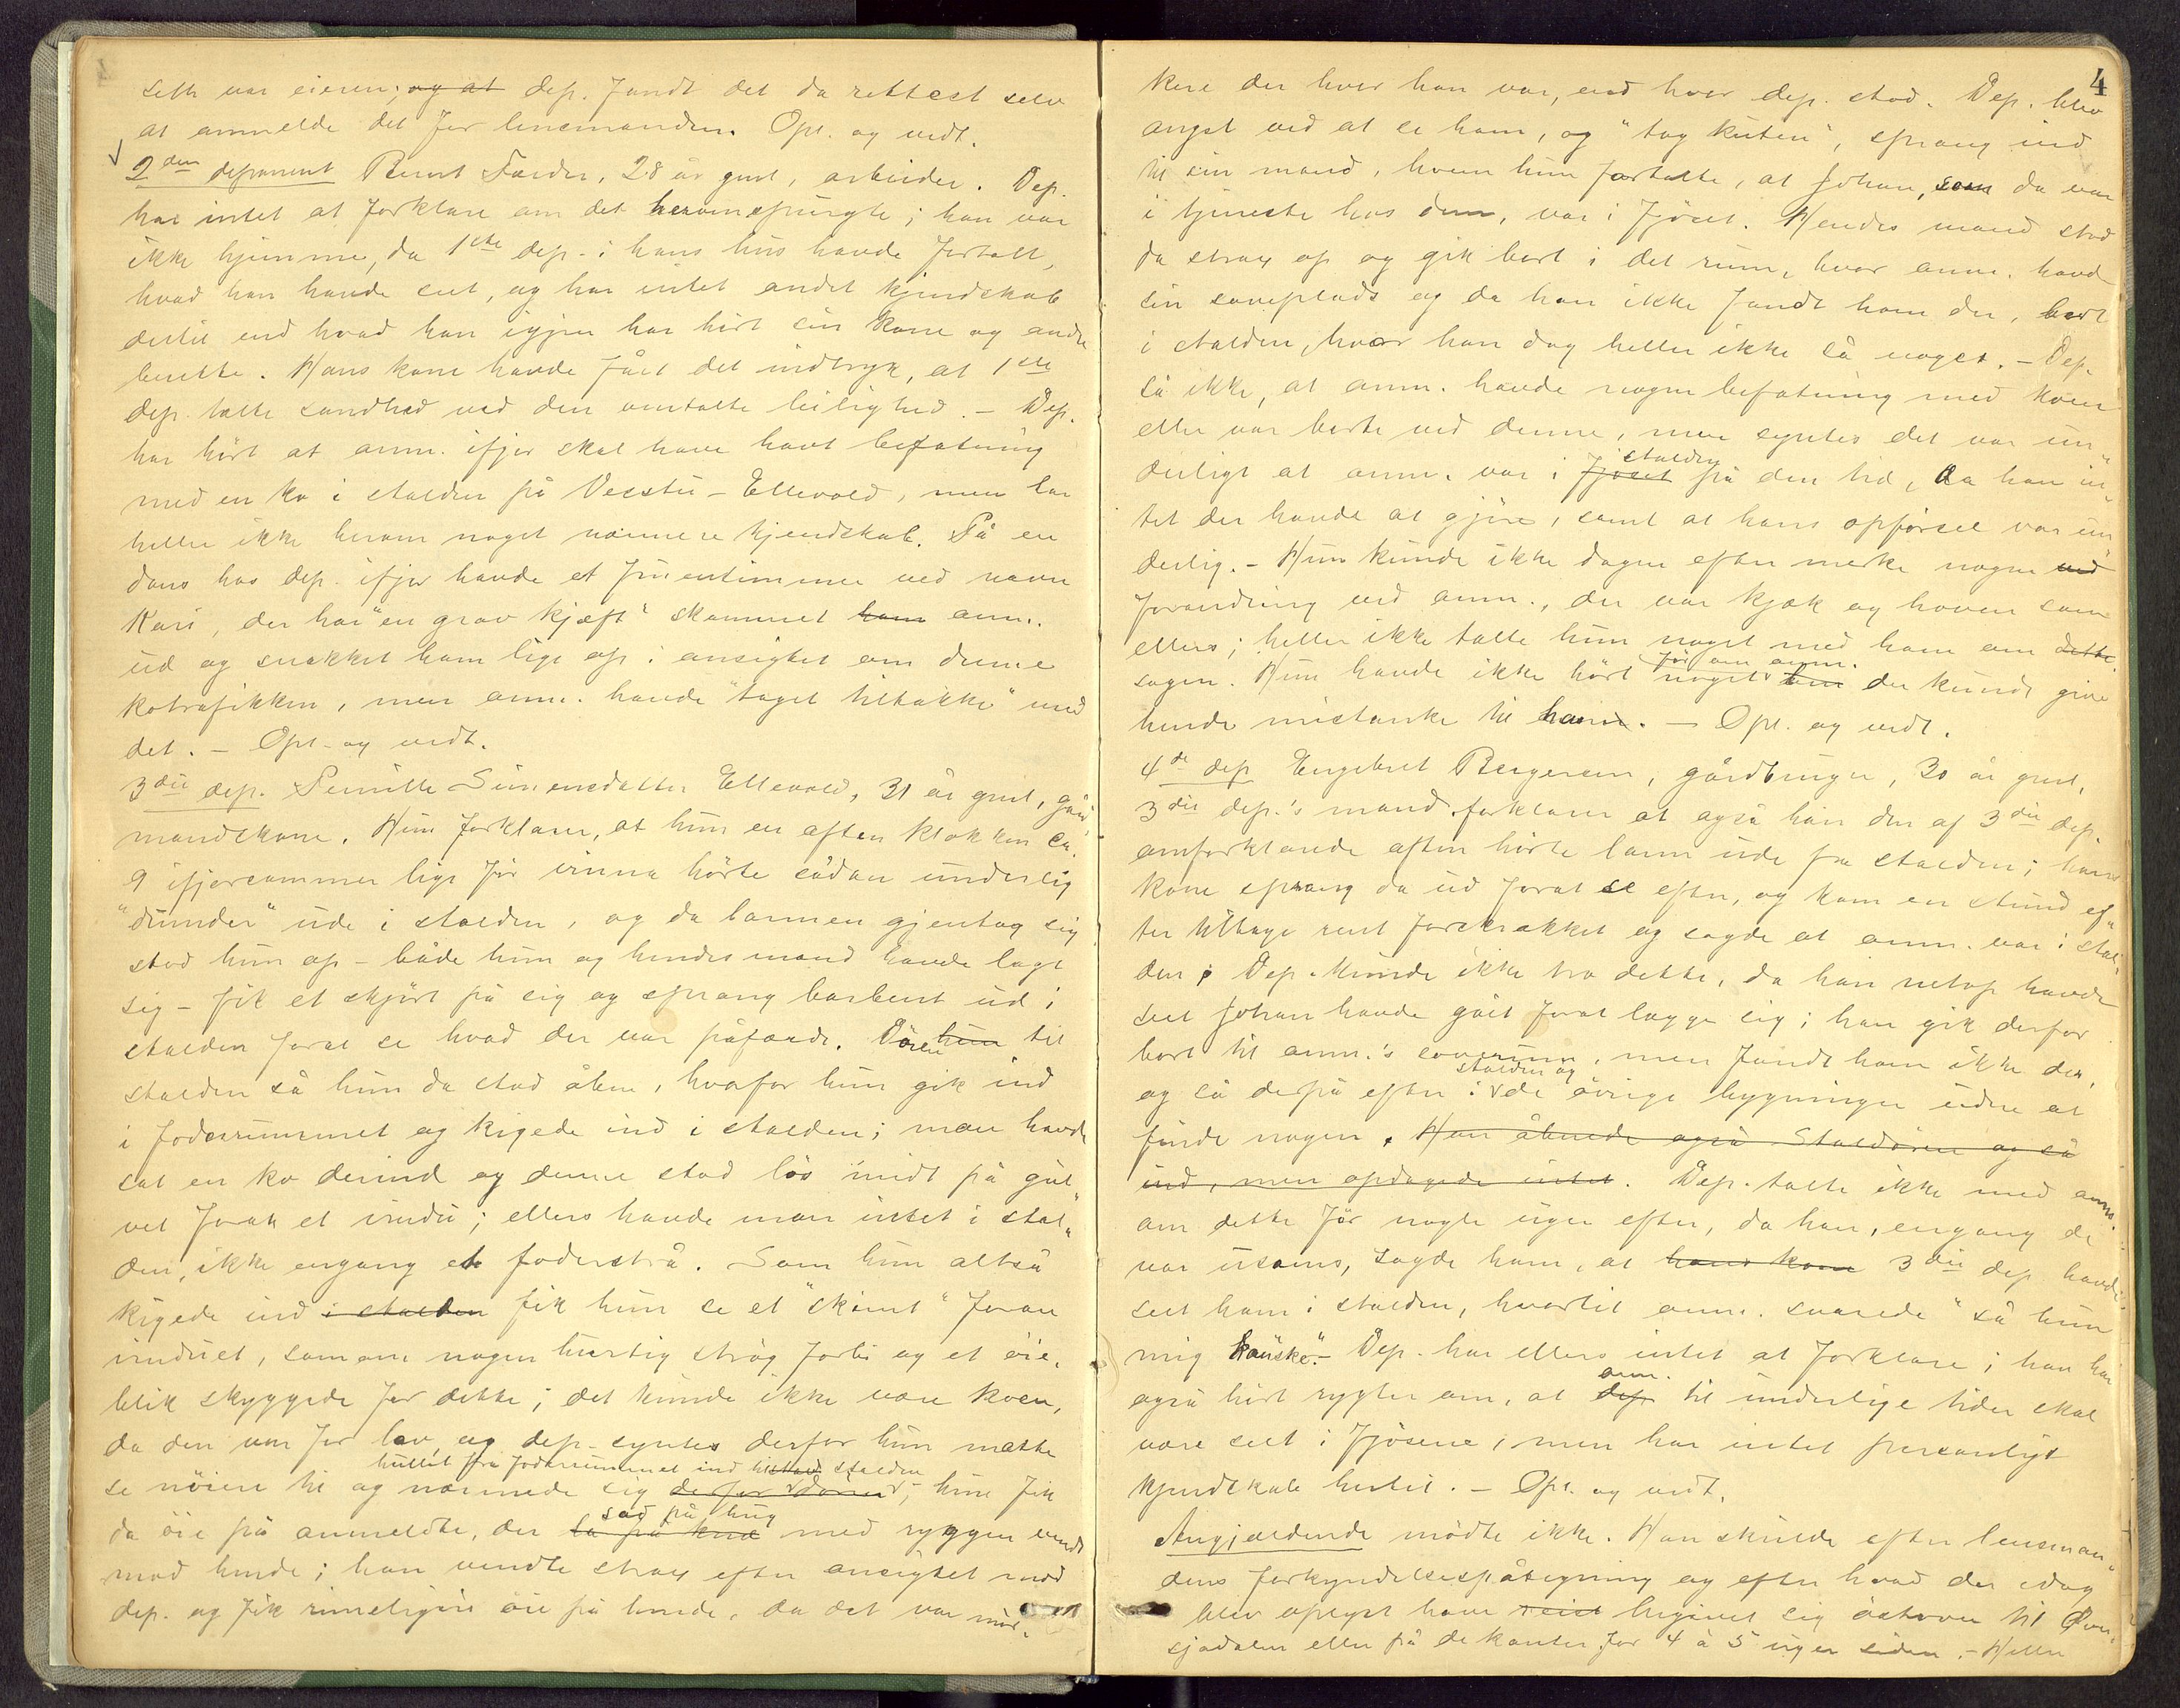 seth var eieren; og at dep. fandt det da rettest selv
at anmelde det for lensmanden. Opl. og vedt.
2den deponent Bernt Bardu, 28 år gml, arbeider. Dep.
har intet at forklare om det heromspurgte; han var
ikke hjemme, da 1ste dep. i hans hus havde fortalt,
hvad han havde seet, og har intet andet kjendskab
dertil end hvad han igjen har hørt sin kone og andre
berette. Hans kone havde fået det indtryk, at 1ste
dep. talte sandhed ved den omtalte leilighed. – Dep.
har hørt at anm. ifjor skal have havt befatning
med en ko i stalden på Vesstu-Ellevold, men har
heller ikke herom noget nærmere kjendskab. På en
dans hos dep. ifjor havde et fruentimmer ved navn
Kari, der har "en grov kjæft" skammet ham anm.
ud og snakket ham lige op i ansigtet om denne
kotrafikken, men anm. havde "taget tiltakke" med
det. – Opl. og vedt.
3die dep. Pernille Simensdatter Ellevold, 31 år gml, gård
mandskone. Hun forklarer, at hun en aften klokken ca.
9 ifjorsommer lige før vinna hørte sådan underlig
"dunder" ude i stalden, og da larmen gjentog sig
stod hun op – både hun og hendes mand havde lagt
sig – fik et skjørt på sig og sprang barbent ud i
stalden forat se hvad der var påfærde. Døren hun til
stalden så hun da stod åben, hvorfor hun gik ind
i foderrummet og kigede ind i stalden; man havde
sat en ko derind og denne stod løs midt på gul"
vet foran et vindu; ellers havde man intet i stal"
den, ikke engang et foderstrå. Som hun altså
kigede ind i stalden fik hun se et "skimt" foran
vinduet, som om nogen hurtig strøg forbi og et øie-
blik skyggede for dette; det kunde ikke være koen,
da den var for lav, og dep. syntes derfor hun måtte
hullet fra foderrummet ind til stald stalden
se nøiere til og nærmede sig derfor døren; hun fik
sad på hug
da øie på anmeldte, der lå på knæ med ryggen vendt
mod hende; han vendte strax efter ansigtet mod
dep. og fik rimeligvis øie på hende, da det var mør-
4
kere der hvor han var, end hvor dep. stod. Dep. blev
angst ved at se ham, og "tog kuten", sprang ind
til sin mand, hvem hun fortalte, at Johan, som da var
i tjeneste hos dem, var i fjøset. Hendes mand stod
da strax op og gik bort i det rum, hvor anm. havde
sin soveplads og da han ikke fandt ham der, bort
i stalden, hvor han dog heller ikke så noget. – Dep.
så ikke, at anm. havde nogen befatning med koen
eller var borte ved denne, men syntes det var un"
stalden
derligt at anm. var i fjøset på den tid, da han in"
tet der havde at gjøre, samt at hans opførsel var un"
derlig. – Hun kunde ikke dagen efter merke nogen ved
forandring ved anm., der var kjæk og hoven som
ellers; heller ikke talte hun noget med ham om dette
før om anm.
sagen. Hun havde ikke hørt noget om der kunde give
hende mistanke til ham. – Opl. og vedt.
4de dep Engebret Bergersen, gårdbruger, 30 år gml,
3die dep.'s mand forklarer at også han den af 3die dep.
omforklarede aften hørte larm ude fra stalden; hans
kone sprang da ud forat se efter, og kom en stund ef"
ter tilbage rent forskrækket og sagde at anm. var i stal"
den. Dep. kunde ikke tro dette, da han netop havde
seet Johan havde gået forat lægge sig; han gik derfor
bort til anm.'s soverum, men fandt ham ikke der,
stalden og
og så derpå efter i de øvrige bygninger uden at
finde nogen. Han åbnede også Stalddøren og så
ind, men opdagede intet. Dep. talte ikke med anm.
om dette før nogle uger efter, da han, engang de
var usams, sagde ham, at hans kone 3die dep havde
seet ham i stalden, hvortil anm. svarede "så hun
mig kanske". Dep. har ellers intet at forklare; han har
anm.
også hørt rygter om, at dep til underlige tider skal
være seet i fjøsene, men har intet personligt
kjendskab hertil. – Opl. og vedt.
Angjældende mødte ikke. Han skulde efter lensman"
dens forkyndelsespåtegning og efter hvad der idag
blev oplyst have reist begivet sig østover til Øver"
sjødalen eller på de kanter for 4 à 5 uger siden. – Heller